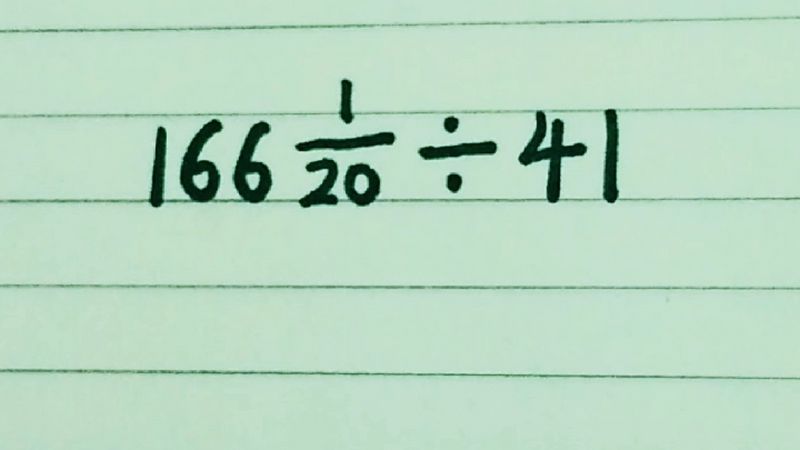 166 1/20 ÷ 41